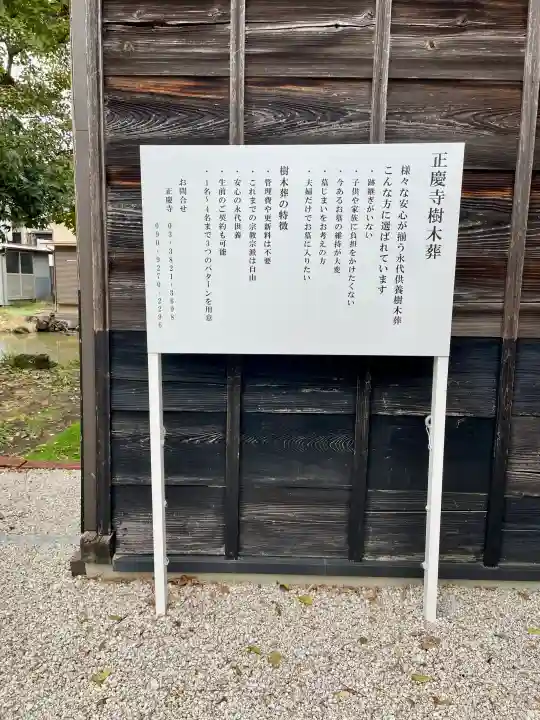 正慶寺樹木葬
様々な安心が揃う永代供養樹木葬
こんな方に選ばれています
・跡継ぎがいない
・子供や家族に負担をかけたくない
・今あるお墓の維持が大変
・墓じまいをお考えの方
・夫婦だけでお墓に入りたい
樹木葬の特徴
・管理費や更新料は不要
・これまでの宗教宗派は自由
・安心の永代供養
・生前のご契約も可能
・1名~4名まで3つのパターンを用意
お問合せ
正慶寺 03-3821-5698
090-9270-2296